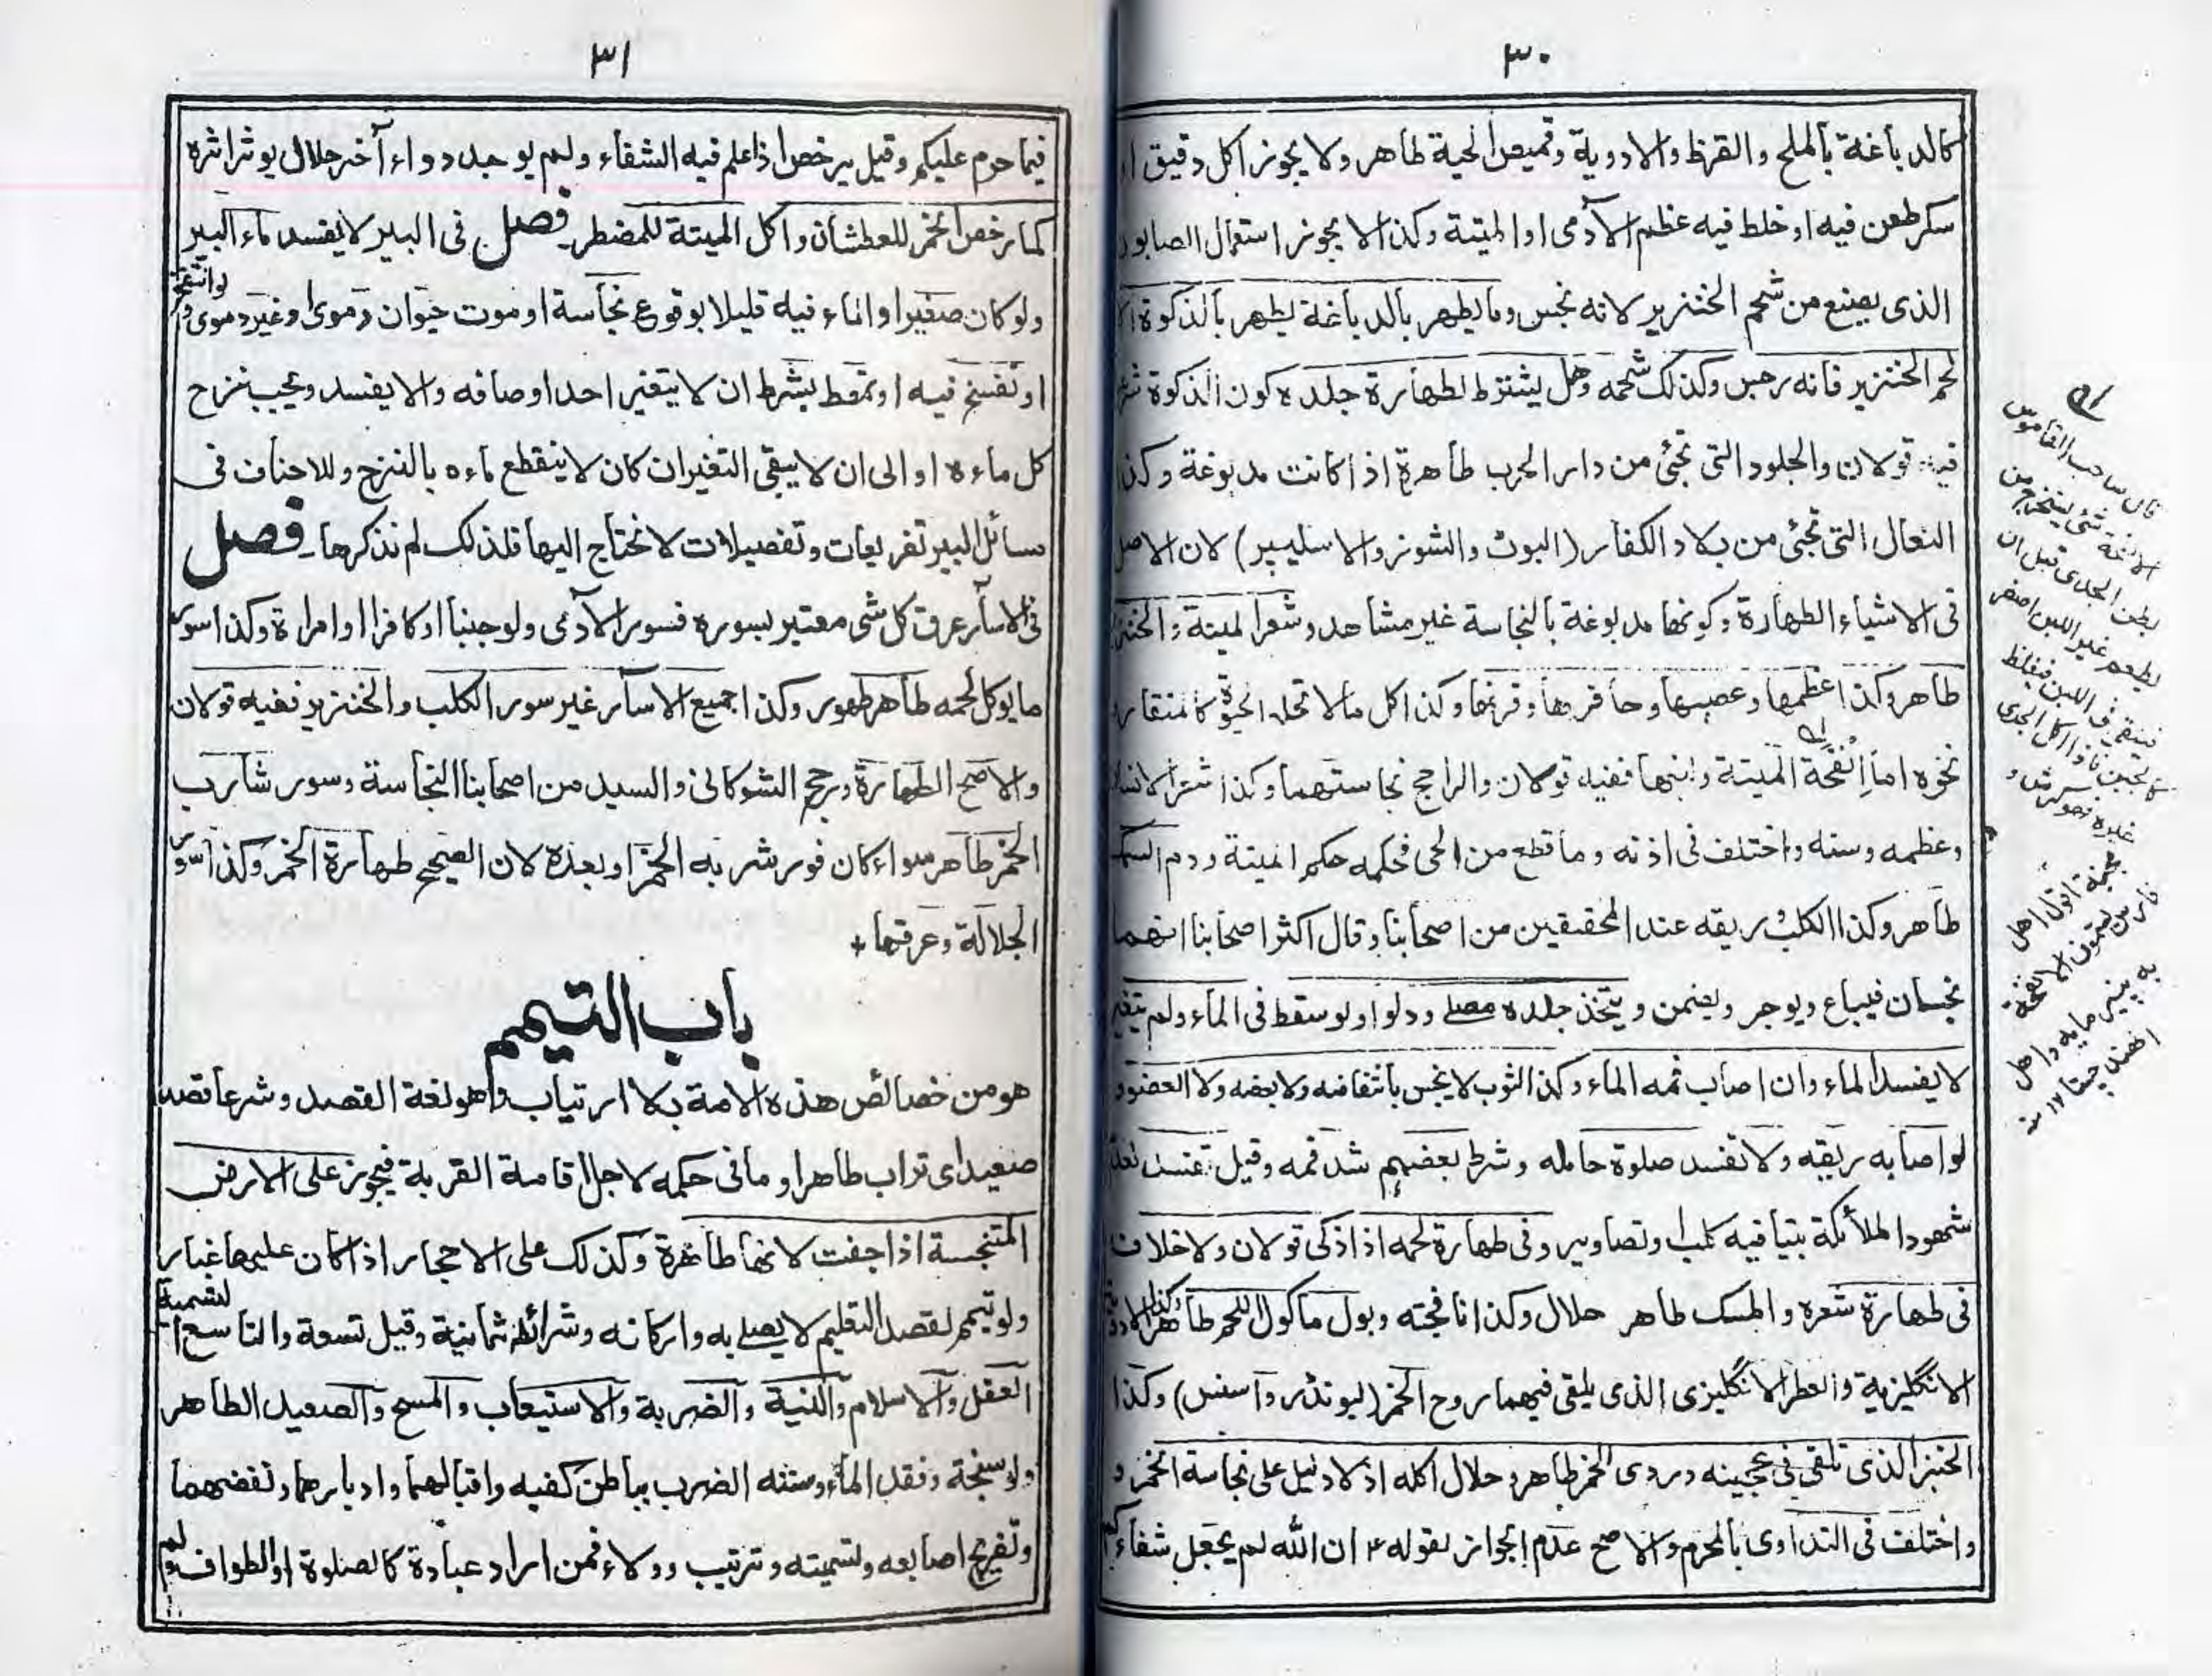 ٣٠
كالدباغة بالملح والقرظ والادوية وقميص الحية طاهر ولا يجوز اكل دقيق
سكر طعن فيه او خلط فيه عظم الآدمى او الميتة وكذا لا يجوز استعمال الصابون
الذى يصنع من شحم الخنزير لانه نجس وما يطهر بالدباغة يطهر بالذكوة الا
لحم الخنزير فانه رجس وكذلك شحمه وهل يشترط لطهارة جلده كون الذكوة
فيه قولان والجلود التى تجئى من دار الحرب طاهرة اذا كانت مدبوغة وكذا
النعال التى تجئى من بلاد الكفار (البوث والشوز والاسليپر) لان الاصل
فى الاشياء الطهارة وكونها مدبوغة بالنجاسة غير مشاهد وشعر الميتة والخنزير
طاهر وكذا عظمها وعصبها وحافرها وقرنها وكذا كل ما لا تحله الحيوة كالمنقار
نحوه اما انفحة الميتة ولبنها ففيه قولان والراجح نجاستهما وكذا شعر الانسان
وعظمه وسنه واختلف فى اذنه وما قطع من الحى فحكمه حكم الميتة ودم السمك
طاهر وكذا الكلب ريقه عند المحققين من اصحابنا وقال اكثر اصحابنا انهما
نجسان فيباع ويوجر ويضمن ويتخذ جلده مصلى ودلوا ولو سقط فى الماء ولم يتغير
لا يفسد الماء وان اصاب فمه الماء وكذا الثوب لا ينجس بانتفاضه ولا بعضه ولا العضو
لو اصابه ريقه ولا تفسد صلوة حامله وشرط بعضهم شد فمه وقيل
شهود الملائكة بيتا فيه كلب وتصاوير وفى طهارة لحمه اذا ذكى قولان ولا خلاف
فى طهارة شعره والمسك طاهر حلال وكذا نافجته وبول ماكول اللحم طاهر وكذا
الانكليزية والعطر الانگليزى الذى يلقى فيهما روح الخمر (ليوندر واسنس) وكذا
الخبز الذى تلقى فى عجينه دردى الخمر طاهر وحلال اكله اذ لا دليل على نجاسة الخمر و
واختلف فى التداوى بالمحرم والاصح عدم الجواز لقوله ٢ ان الله لم يجعل شفاءكم
قال صاحب القاموس
الانفحة شئ يستخرج من
بطن الجدى قبل ان
يطعم غير اللبن اصفر
فى اللبن فيغلظ
كالجبن فاذا اكل الجدى
غيره فهو كرش و
اقول اهل
فارس يسمون الانفحة
به پنير مايه واهل
الهند ١٢ منه
٣١
فيما حرم عليكم وقيل يرخص اذا علم فيه الشفاء ولم يوجد دواء آخر حلال يوثر اثره
كما رخص الخمر للعطشان واكل الميتة للمضطر فصل فى البير لا يفسد ماء البير
ولو كان صغيرا والماء فيه قليلا بوقوع نجاسة او موت حيوان دموى او غير دموى ولو انتفخ
او تفسخ فيه او تمعط بشرط ان لا يتغير احد اوصافه والا يفسد ويجب نزح
كل ماءه او الى ان لا يبقى التغير ان كان لا ينقطع ماءه بالنزح وللاحناف فى
مسائل البير تفريعات وتفصيلات لا نحتاج اليها فلذلك لم نذكرها فصل
فى الاسار عرق كل شى معتبر بسوره فسور الآدمى ولو جنبا او كافرا او امراة وكذا سور
ما يوكل لحمه طاهر طهور وكذا جميع الاسار غير سور الكلب والخنزير ففيه قولان
والاصح الطهارة ورجح الشوكانى والسيد من اصحابنا النجاسة وسور شارب
الخمر طاهر سواء كان فور شربه الخمر او بعده لان الصحيح طهارة الخمر وكذا سور
الجلالة وعرقها
باب التيمم
هو من خصائص هذه الامة بلا ارتياب وهو لغة القصد وشرعا قصد
صعيد اى تراب طاهر او ما فى حكمه لاجل اقامة القربة فيجوز على الارض
المتنجسة اذا جفت لانها طاهرة وكذلك على الاحجار اذا كان عليها غبار
ولو تيمم لقصد التعليم لا يصلى به واركانه وشرائطه ثمانية وقيل تسعة والتاسع التسمية
العقل والاسلام والنية والضربة والاستيعاب والمسح والصعيد الطاهر
ولو سبخة وفقد الماء وسننه الضرب بباطن كفيه واقبالهما وادبارهما ونفضهما
وتفريج اصابعه وتسميته وترتيب وولاء فمن اراد عبادة كالصلوة او الطواف ولم